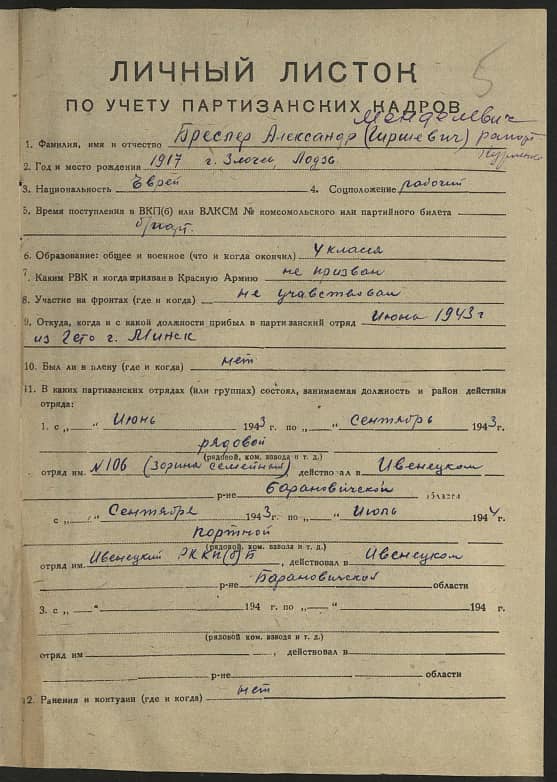 5
ЛИЧНЫЙ ЛИСТОК
ПО УЧЕТУ ПАРТИЗАНСКИХ КАДРОВ
Менделевич
1. Фамилия, имя и отчество Бреслер Александр (Гиршевич) рапорт
2. Год и место рождения 1917 г. Злочев, Лодзь
3. Национальность Еврей 4. Соцположение рабочий
5. Время поступления в ВКП(б) или ВЛКСМ № комсомольского или партийного билета
б/парт.
6. Образование: общее и военное (что и когда окончил) 4 класса
7. Каким РВК и когда призван в Красную Армию не призван
8. Участие на фронтах (где и когда) не учавствовал
9. Откуда, когда и с какой должности прибыл в партизанский отряд Июня 1943 г
из Гето г. Минск
10. Был ли в плену (где и когда) нет
11. В каких партизанских отрядах (или группах) состоял, занимаемая должность и район действия
отряда:
1. с „ “ Июнь 1943 г. по „ “ Сентябрь 1943 г.
рядовой
(рядовой, ком. взвода и т. д.)
отряд им. №106 (Зорина семейный) действо ал в Ивенецком
р-не Барановичской области
с „ “ Сентябре 1943 г. по „ “ Июль 1944 г.
портной
(рядовой, ком. взвода и т. д.)
отряд им. Ивенецкий РК КП(б)Б, действовал в Ивенецком
р-не Барановичской области
3. с „ “ 194 г. по „ “ 194 г.
(рядовой ком. взвода и т. д.)
отряд им , действовал в
р-не области
12. Ранения и контузии (где и когда) нет